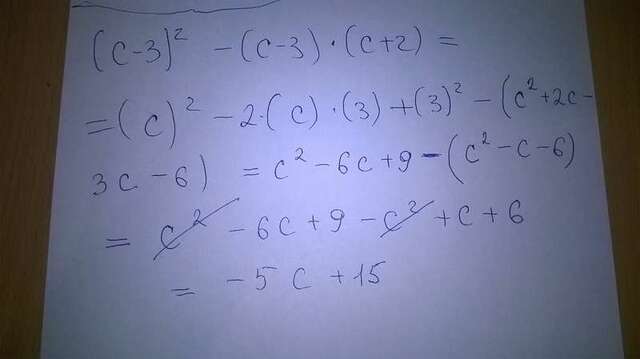 (c-3)² - (c-3)·(c+2) =
= (c)² - 2·(c)·(3) + (3)² - (c² + 2c -
3c - 6) = c² - 6c + 9 - (c² - c - 6)
= c² - 6c + 9 - c² + c + 6
= -5c + 15